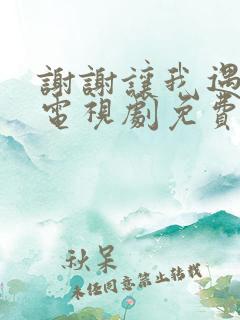 謝謝讓我遇
電視劇免費
秋呆
未經同意禁止轉載